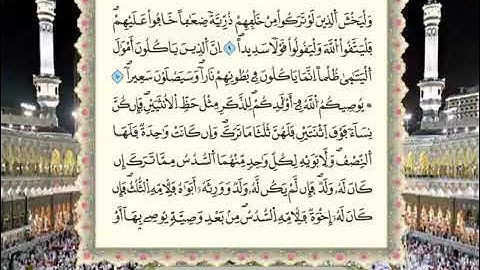 وَلْيَخْشَ ٱلَّذِينَ لَوْ تَرَكُوا۟ مِنْ خَلْفِهِمْ ذُرِّيَّةً ضِعَٰفًا خَافُوا۟ عَلَيْهِمْ
فَلْيَتَّقُوا۟ ٱللَّهَ وَلْيَقُولُوا۟ قَوْلًا سَدِيدًا ۹ إِنَّ ٱلَّذِينَ يَاكُلُونَ أَمْوَٰلَ
ٱلْيَتَٰمَىٰ ظُلْمًا اِنَّمَا يَاكُلُونَ فِے بُطُونِهِمْ نَارًا وَسَيَصْلَوْنَ سَعِيرًا ۱۰
يُوصِيكُمُ ٱللَّهُ فِے أَوْلَٰدِكُمْ لِلذَّكَرِ مِثْلُ حَظِّ ٱلُانثَيَيْنِ فَإِن كُنَّ
نِسَآءً فَوْقَ ٱثْنَتَيْنِ فَلَهُنَّ ثُلُثَا مَا تَرَكَ وَإِن كَانَتْ وَٰحِدَةٌ فَلَهَا
ٱلنِّصْفُ وَلِأَبَوَيْهِ لِكُلِّ وَٰحِدٍ مِّنْهُمَا ٱلسُّدُسُ مِمَّا تَرَكَ إِن
كَانَ لَهُۥ وَلَدٌ فَإِن لَّمْ يَكُن لَّهُۥ وَلَدٌ وَوَرِثَهُۥٓ أَبَوَٰهُ فَلِأُمِّهِ ٱلثُّلُثُ فَإِن
كَانَ لَهُۥٓ إِخْوَةٌ فَلِأُمِّهِ ٱلسُّدُسُ مِنۢ بَعْدِ وَصِيَّةٍ يُوصِے بِهَآ أَوْ